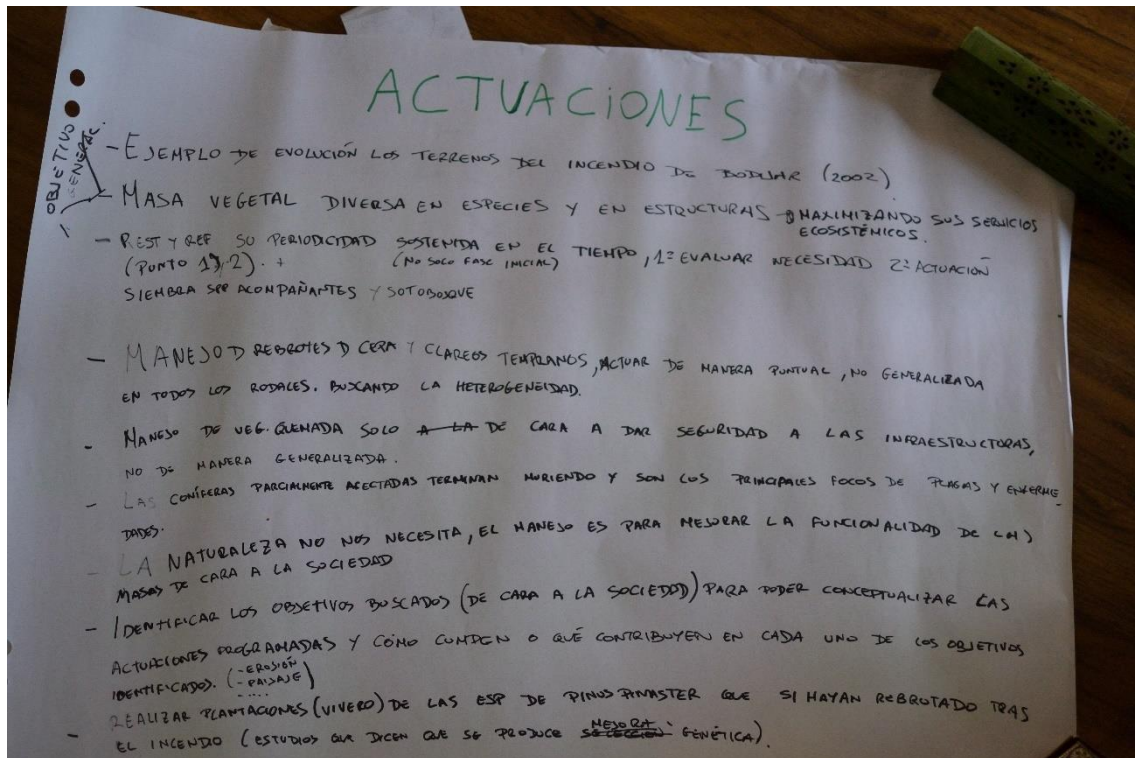 ACTUACiONES
OBJETIVO
GENERAL.
- EJEMPLO DE EVOLUCIÓN LOS TERRENOS DEL INCENDIO DE BODIJAR (2002)
- MASA VEGETAL DIVERSA EN ESPECIES Y EN ESTRUCTURAS → MAXIMIZANDO SUS SERVICIOS
ECOSISTÉMICOS.
- REST Y REF SU PERIODICIDAD SOSTENIDA EN EL TIEMPO, 1º EVALUAR NECESIDAD 2º ACTUACIÓN
(PUNTO 1 y 2). + (NO SOLO FASE INICIAL)
SIEMBRA SPP ACOMPAÑANTES Y SOTOBOSQUE
- MANEJO D REBROTES D CEPA Y CLAREOS TEMPRANOS, ACTUAR DE MANERA PUNTUAL, NO GENERALIZADA
EN TODOS LOS RODALES. BUSCANDO LA HETEROGENEIDAD.
- MANEJO DE VEG. QUEMADA SOLO A LA DE CARA A DAR SEGURIDAD A LAS INFRAESTRUCTURAS,
NO DE MANERA GENERALIZADA.
- LAS CONÍFERAS PARCIALMENTE AFECTADAS TERMINAN MURIENDO Y SON LOS PRINCIPALES FOCOS DE PLAGAS Y ENFERME
DADES.
- LA NATURALEZA NO NOS NECESITA, EL MANEJO ES PARA MEJORAR LA FUNCIONALIDAD DE LAS
MASAS DE CARA A LA SOCIEDAD
- IDENTIFICAR LOS OBJETIVOS BUSCADOS (DE CARA A LA SOCIEDAD) PARA PODER CONCEPTUALIZAR LAS
ACTUACIONES PROGRAMADAS Y CÓMO CUMPLEN O QUÉ CONTRIBUYEN EN CADA UNO DE LOS OBJETIVOS
IDENTIFICADOS. (-EROSIÓN
-PAISAJE
....)
- REALIZAR PLANTACIONES (VIVERO) DE LAS ESP DE PINUS PINASTER QUE SI HAYAN REBROTADO TRAS
EL INCENDIO (ESTUDIOS QUE DICEN QUE SE PRODUCE SELECCIÓN MEJORA GENÉTICA).